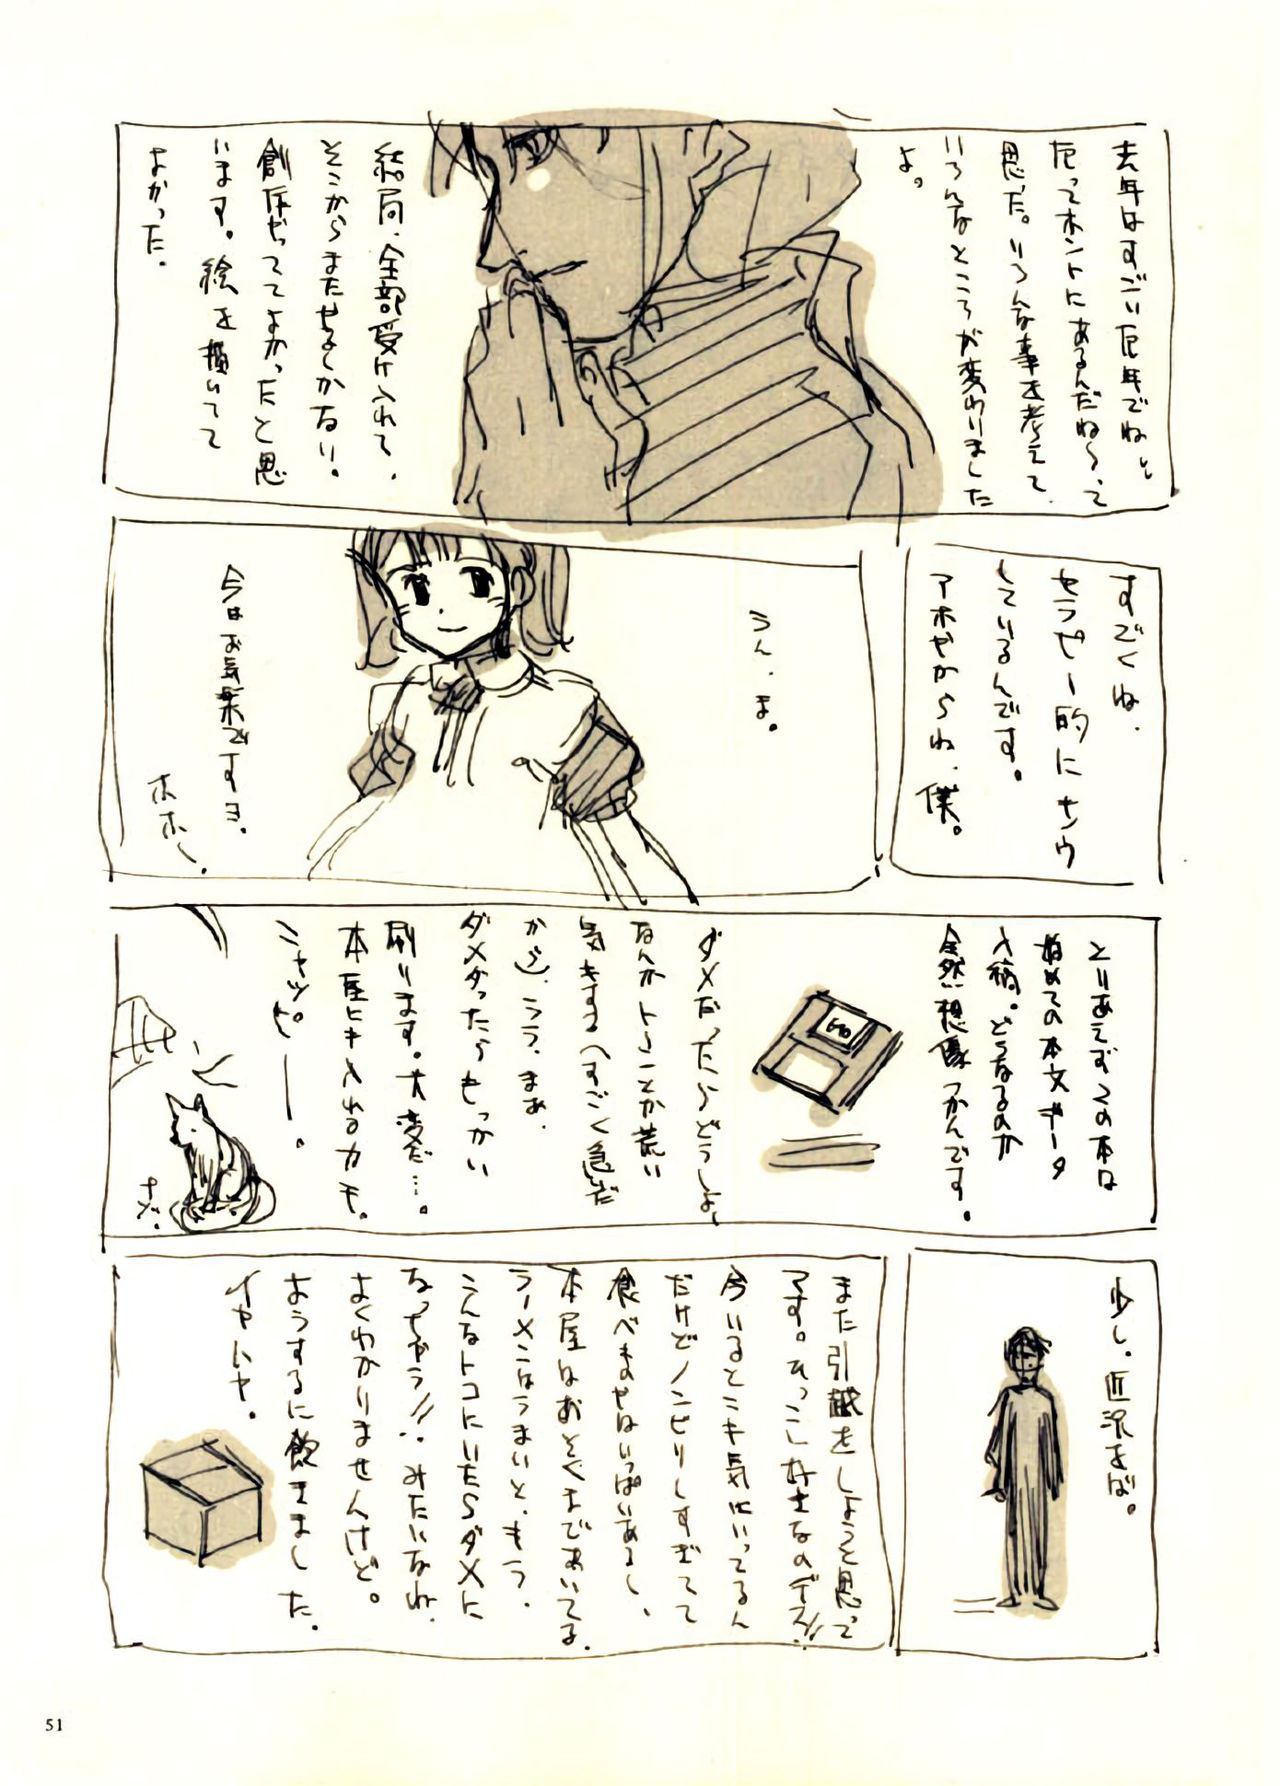 去年はすごい厄年でね、
厄ってホントにあるんだね〜って
思った。いろんな事を考えて
いろんなところが変わりました
よ。
結局、全部受け入れて、
そこからまたやるしかない。
創作やっててよかったと思
います。絵を描いてて
よかった。
すごくね、
セラピー的にナンウ
しているんです。
アホやからね、僕。
うん、ま。
今はお気楽ですヨ。
ホホ〜。
とりあえずこの本は
始めての本文データ
入稿。どうなるのか
全然想像つかんです。
GAO
ダメだったらどうしよ、
なんかトーンとか荒い
気もする(すごく急いだ
から)、うう、まぁ、
ダメだったらもっかい
刷ります。大変だ…。
本屋にも入れるカモ。
ニャッピ――。
少し、近況をば。
また引越をしようと思って
マす。ひっこし好きなのデス!!
今いるとこも気にいってるん
だけどノンビリしすぎてて
食べものやはいっぱいあるし、
本屋はおそくまであいてる、
ラーメンはうまいと、もう、
こんなトコにいたらダメに
なっちゃう!!、みたいなね、
よくわかりませんけど。
ようするに飽きました。
イヤハヤ。
51